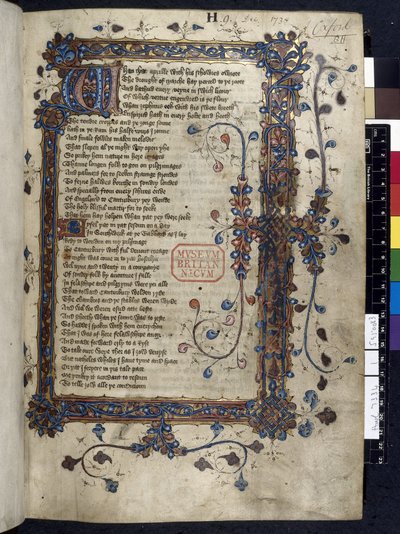 H
1734
Oxford
B II
Whan that aprille with his schowres swoote
The drought of marche haþ perced to þe roote
And bathud euery veyne in swich licour
Of which vertue engendred is þe flour
Whan zephirus eek with his swete breeth
Enspirud hath in euery holte and heeth
The tendre croppes and þe yonge sonne
Hath in þe Ram his halfe cours I ronne
And smale fowles maken melodie
That slepen al þe night with open yhe
So prikeþ hem nature in here corages
Thanne longen folk to goon on pilgrimages
And palmers for to seeken straunge strondes
To ferne halwes kouthe in sondry londes
And specially from euery schires ende
Of Engelond to Canturbury þey wende
The holy blisful martir for to seeke
That hem haþ holpen whan þat þey were seeke
Byfel þat in þat sesoun on a day
In Southwerk at þe Tabbard as I lay
Redy to wenden on my pilgrimage
To Canturbury with ful deuout corage
At night was come in to þat hostelrie
Wel nyne and twenty in a companye
Of sondry folk by auenture I falle
In felaschipe and pilgryms were þei alle
That toward Canturbury wolden ryde
The chambres and þe stables weren wyde
And wel we weren esud atte beste
And schortly whan þe sonne was to reste
So hadde I spoken with hem euerychon
That I was of here felaschipe anon
And made forward erly to aryse
To take oure weye þer as I yow deuyse
But natheles whiles I haue tyme and space
Or þat I forþer in þis tale pace
Me þinketh it acordant to resoun
To telle yow alle þe condicioun
MVSEVM
BRITAN
NICVM
Harl 7334 1